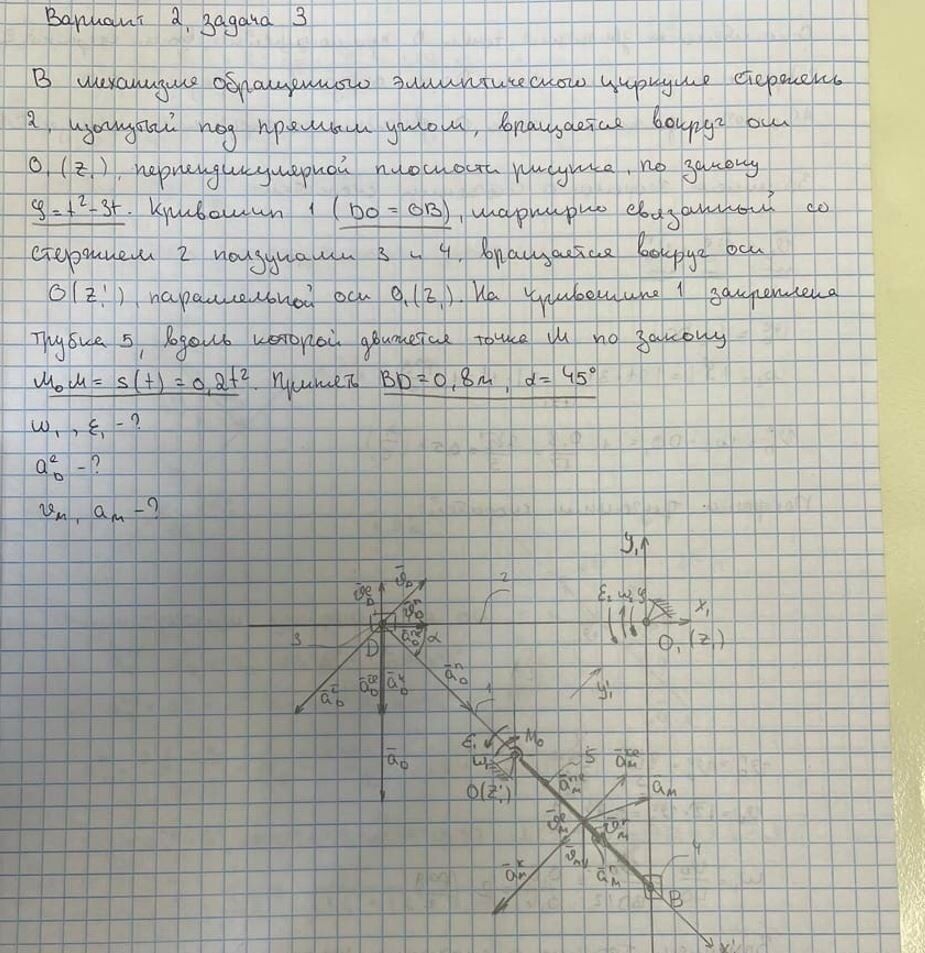 Вариант 2, задача 3
В механизме обращенного эллиптического циркуля стержень
2, изогнутый под прямым углом, вращается вокруг оси
O₁(z₁), перпендикулярной плоскости рисунка, по закону
φ=t²-3t. Кривошип 1 (DO = OB), шарнирно связанный со
стержнем 2 ползунами 3 и 4, вращается вокруг оси
O(z₁'), параллельной оси O₁(z₁). На кривошипе 1 закреплена
трубка 5, вдоль которой движется точка M по закону
M₀M = s(t) = 0,2t². Принять BD = 0,8м, α = 45°
ω₁, ε₁ - ?
a_D^τ - ?
v_M, a_M - ?
y₁
2
x₁
O₁ (z₁)
3
D
α
v̄_D
ā_D^n
1
y₁'
ā_D
ε₁
M₀
ω₁
O(z₁')
5
a_M
4
B
x₁'